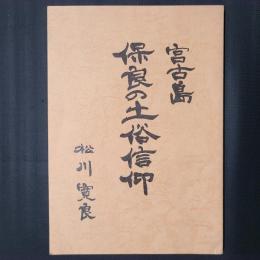 宮古島
保良の土俗信仰
松川寛良